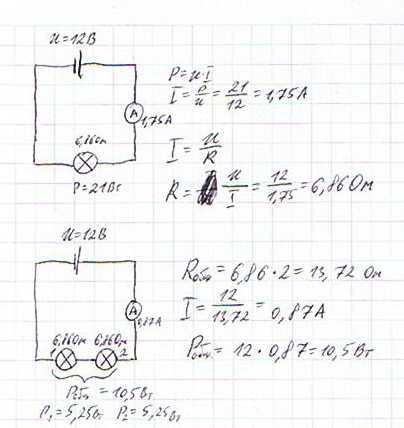 u=12В
А
1,75А
6,86Ом
P=21Вт
P=u·I
I=P/u=21/12=1,75А
I=u/R
R=u/I=12/1,75=6,86Ом
u=12В
А
0,87А
6,86Ом 6,86Ом
1 2
Pобщ=10,5Вт
P₁=5,25Вт P₂=5,25Вт
Rобщ=6,86·2=13,72 Ом
I=12/13,72=0,87А
Pобщ=12·0,87=10,5Вт